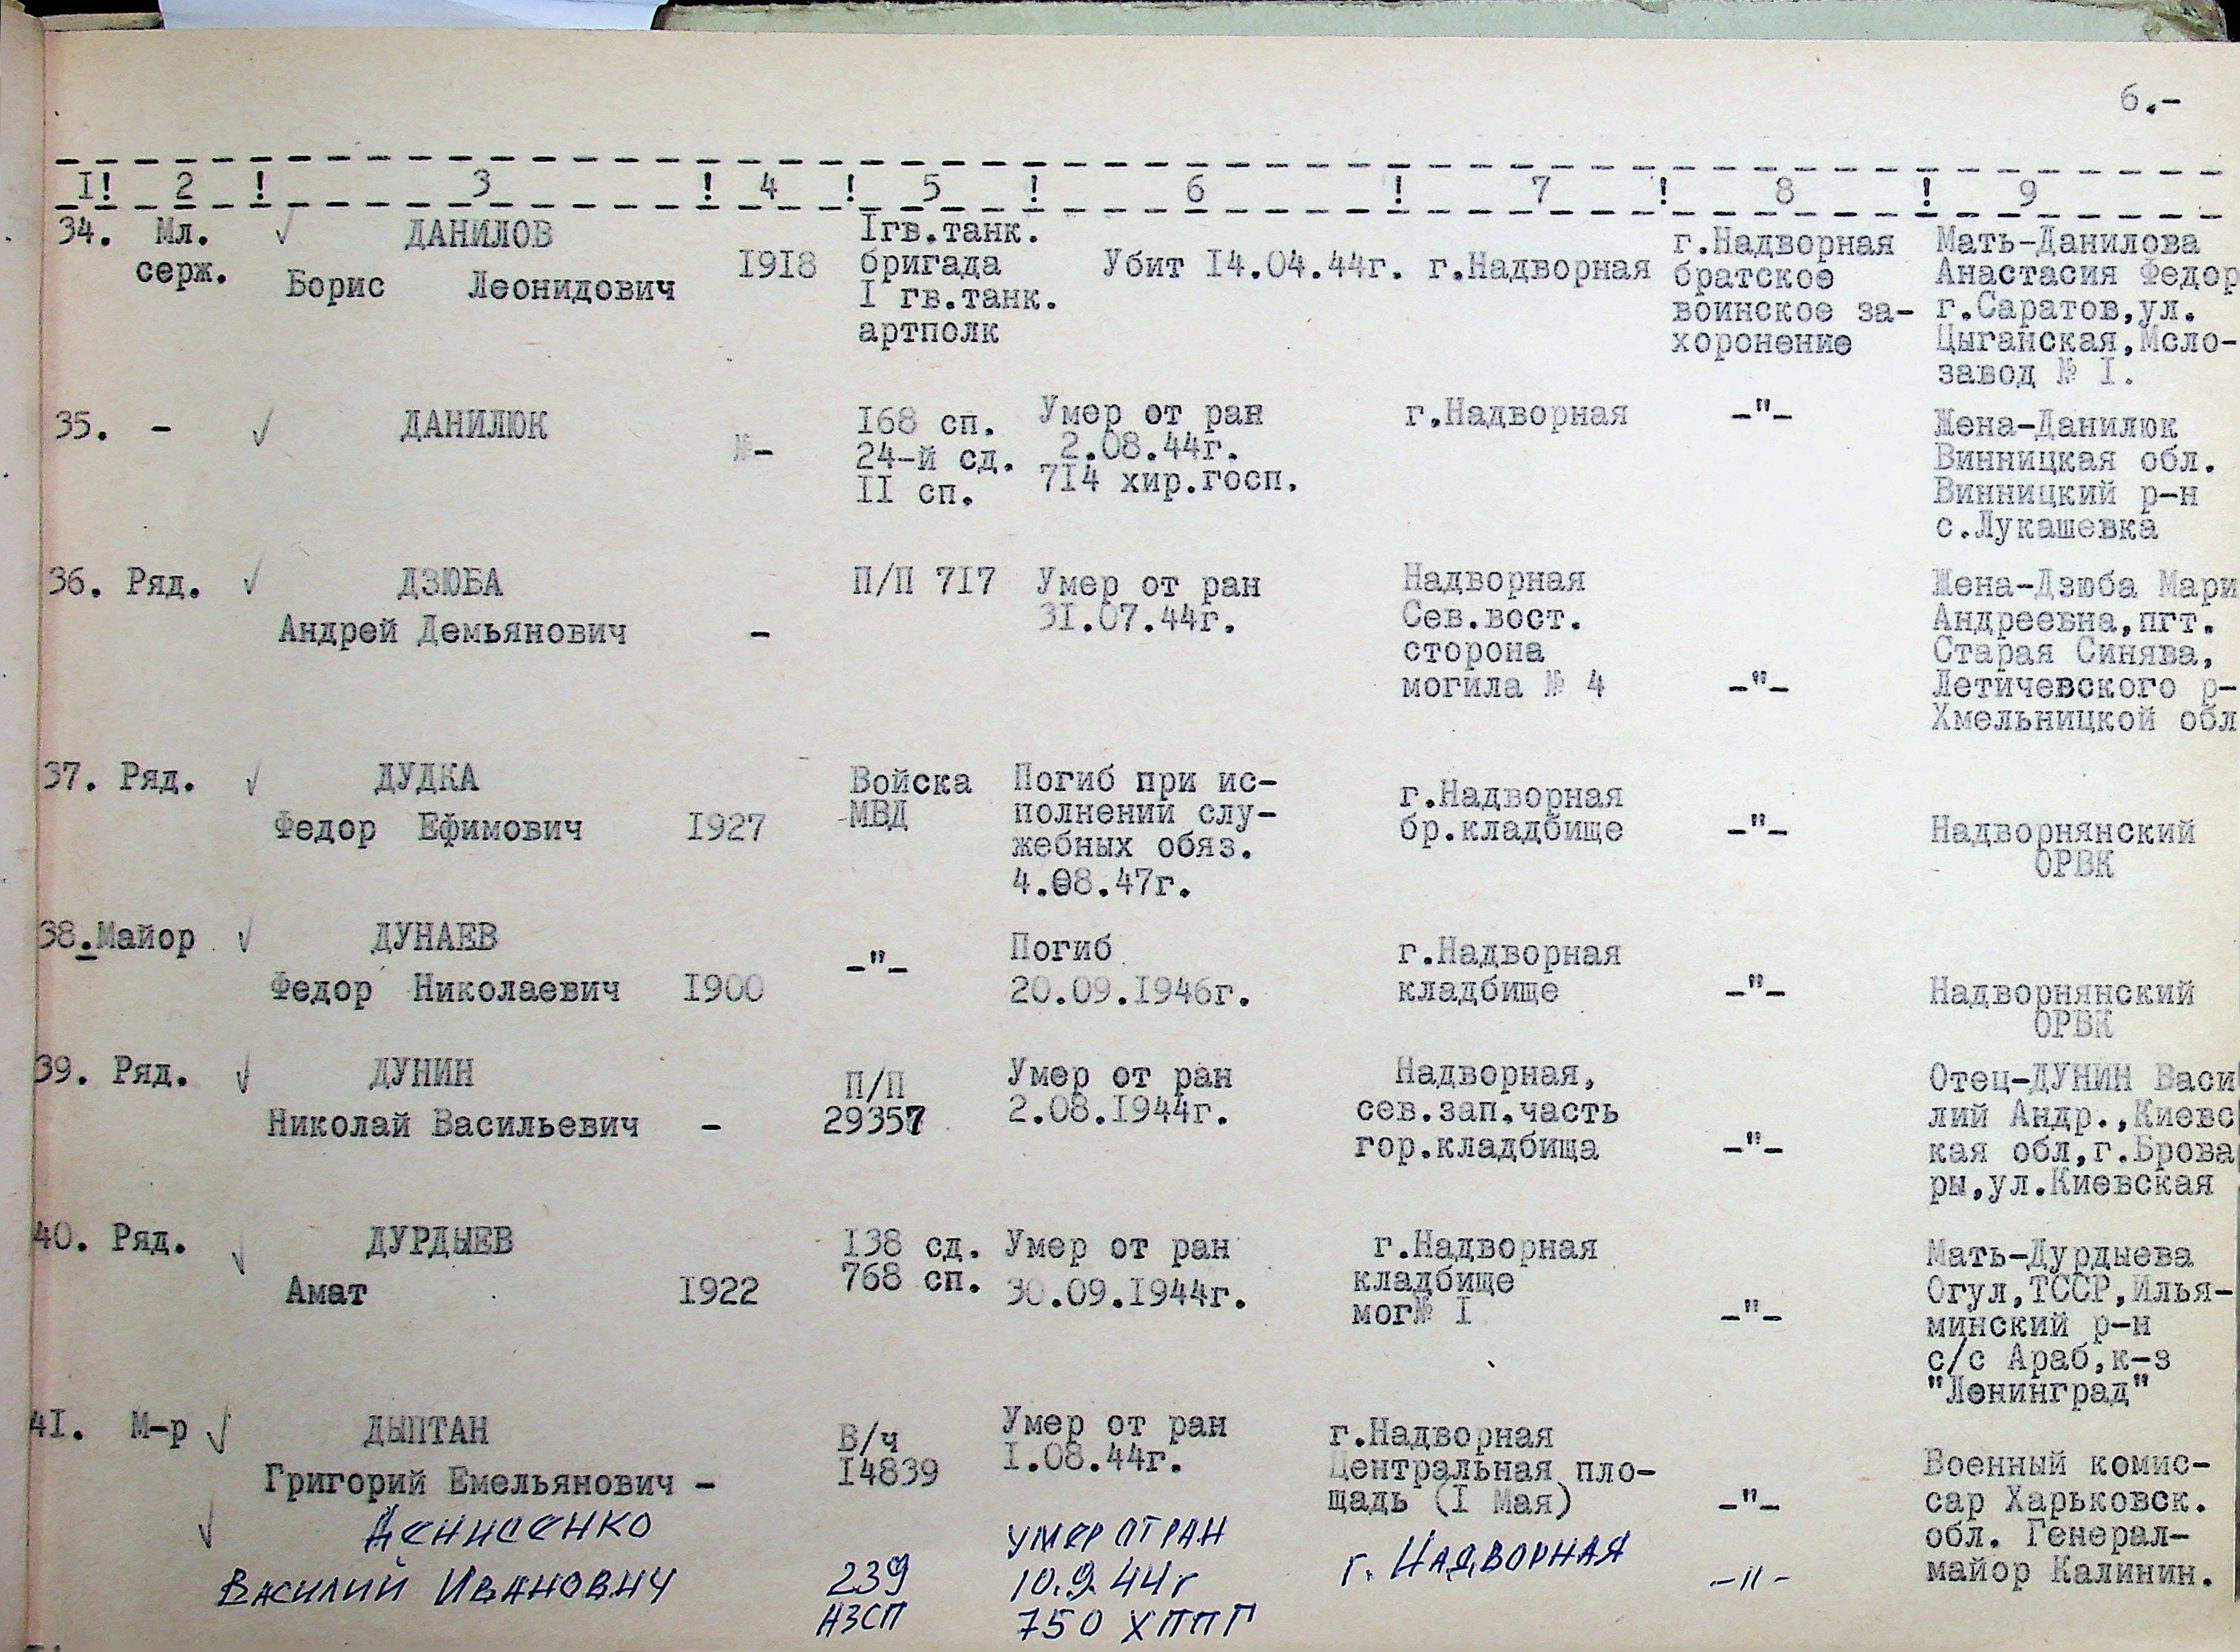 6.-
I! 2 ! 3 ! 4 ! 5 ! 6 ! 7 ! 8 ! 9
34. Мл. ДАНИЛОВ Iгв.танк. г.Надворная Мать-Данилова
серж. Борис Леонидович I9I8 бригада Убит I4.04.44г. г.Надворная братское Анастасия Федор
I гв.танк. воинское за- г.Саратов,ул.
артполк хоронение Цыганская,Мсло-
завод № I.
35. - ДАНИЛЮК I68 сп. Умер от ран г.Надворная -"- Жена-Данилюк
- 24-й сд. 2.08.44г. Винницкая обл.
II сп. 7I4 хир.госп. Винницкий р-н
с.Лукашевка
36. Ряд. ДЗЮБА П/П 7I7 Умер от ран Надворная Жена-Дзюба Мари
Андрей Демьянович - 3I.07.44г. Сев.вост. Андреевна,пгт.
сторона Старая Синява,
могила № 4 -"- Летичевского р-
Хмельницкой обл
37. Ряд. ДУДКА Войска Погиб при ис- г.Надворная
Федор Ефимович I927 МВД полнении слу- бр.кладбище -"- Надворнянский
жебных обяз. ОРВК
4.08.47г.
38.Майор ДУНАЕВ -"- Погиб г.Надворная
Федор Николаевич I900 20.09.I946г. кладбище -"- Надворнянский
ОРВК
39. Ряд. ДУНИН П/П Умер от ран Надворная, Отец-ДУНИН Васи
Николай Васильевич - 29357 2.08.I944г. сев.зап.часть лий Андр.,Киевс
гор.кладбища -"- кая обл,г.Брова
ры,ул.Киевская
40. Ряд. ДУРДЫЕВ I38 сд. Умер от ран г.Надворная Мать-Дурдыева
Амат I922 768 сп. 30.09.I944г. кладбище Огул,ТССР,Илья-
мог№ I -"- минский р-н
с/с Араб,к-з
"Ленинград"
4I. М-р ДЫПТАН В/ч Умер от ран г.Надворная
Григорий Емельянович - I4839 I.08.44г. Центральная пло- Военный комис-
щадь (I Мая) -"- сар Харьковск.
Денисенко умер от ран г. Надворная обл. Генерал-
Василий Иванович 239 10.9.44г -"- майор Калинин.
АЗСП 750 ХППГ